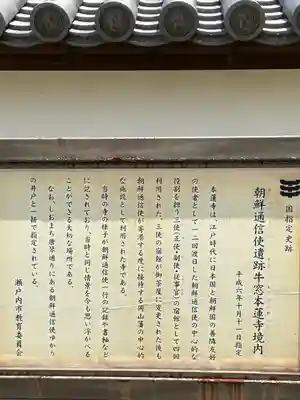 国指定史跡
朝鮮通信使遺跡牛窓本蓮寺境内
平成六年十月十一日指定
本蓮寺は、江戸時代に日本国と朝鮮国の善隣友好
の使者として一二回渡日した朝鮮通信使の中心的な
役割を担う三使（正使・副使・従事官）の宿館として四回
利用された。三使の宿館が御茶屋に変更された後も
朝鮮通信使が寄港する度に接待する岡山藩の中心的
な施設として利用された寺である。
当時の寺の様子が朝鮮通信使一行の記録や書軸など
に記されており、当時と同じ情景を今も思い浮かべる
ことができる大切な場所である。
なお、しおまち唐琴通りにある朝鮮通信使ゆかり
の井戸と一括で指定されている。
瀬戸内市教育委員会